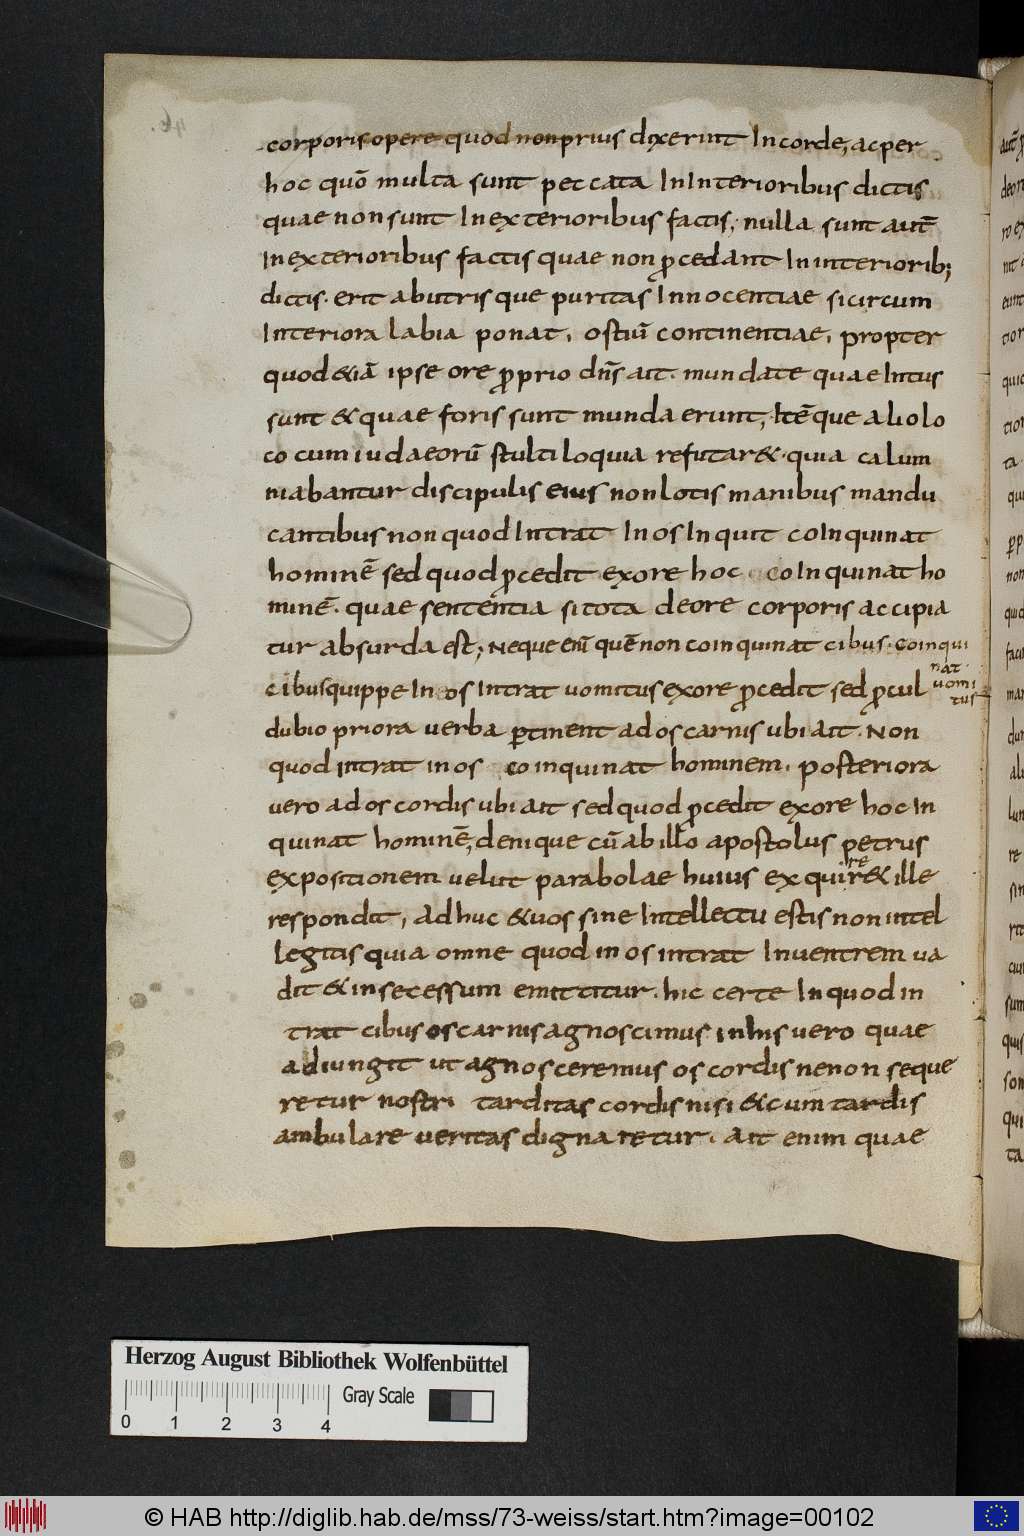 corporis opere quod non prius dixerint Incorde; acper
hoc quō multa sunt peccata InInterioribus dictis
quae non sunt Inexterioribus factis; nulla sunt aut̄
Inexterioribus factis quae non p̱cedant Ininteriorib;
dictis. erit abutrisque puritas Innocentiae sicircum
Interiora labia ponat. ostiū continentiae. propter
quod &iā ipse ore p̱prio dn̄s ait. mundate quae Intus
sunt & quae foris sunt munda erunt; Itē que alio lo
co cum iudaeorū stultiloquia refutar&. quia calum
niabantur discipulis eius non lotis manibus mandu
cantibus non quod Intrat In os Inquit coInquinat
hominē sed quod p̱cedit exore hoc coInquinat ho
minē. quae sententia si tota deore corporis accipia
tur absurda est; Neque enī quē non coinquinat cibus. coinqui
nat
vomi
tus
cibus quippe In os Intrat uomitus exore p̱cedit sed p̱cul
dubio priora uerba p̱tinent ad os carnis ubi ait. Non
quod intrat in os coinquinat hominem. posteriora
uero ad os cordis ubi ait sed quod p̱cedit exore hoc In
quinat hominē; denique cū ab illo apostolus petrus
re
expositionem uelut parabolae huius exquir&ille
respondit. Adhuc &uos sine Intellectu estis non intel
legitis quia omne quod in os intrat Inuentrem ua
dit & insecessum emittitur. hic certe Inquod in
trat cibus os carnis agnoscimus inhis uero quae
adiungit ut agnosceremus os cordis nenon seque
retur nostri tarditas cordis nisi &cum tardis
ambulare ueritas dignaretur. Ait enim quae
Herzog August Bibliothek Wolfenbüttel
Gray Scale
0 1 2 3 4
© HAB http://diglib.hab.de/mss/73-weiss/start.htm?image=00102